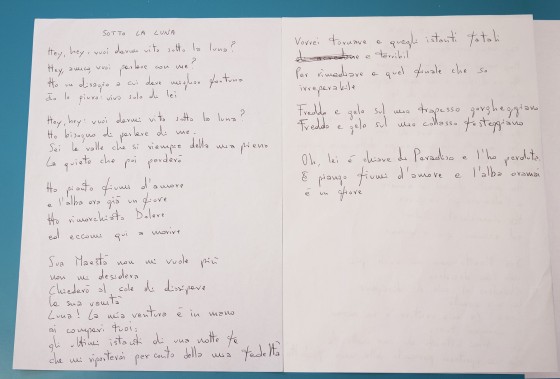 SOTTO LA LUNA
Hey, hey: vuoi darmi vita sotto la luna?
Hey, vuoi parlare con me?
Ho un disagio a cui dare migliore fortuna
io lo vivrei vivo solo di lei
Hey, hey: vuoi darmi vita sotto la luna?
Ho bisogno di parlare di me.
Sei la valle che si riempie della mia piena
La quiete che poi perderò
Ho pianto fiumi d'amore
e l'alba era già un fiore
Ho rimorchiato Dolore
ed eccomi qui a morire
Sua Maestà non mi vuole più
non mi desidera
Chiederò al sole di dissipare
la sua vanità
Luna! La mia ventura è in mano
ai compari tuoi:
gli ultimi istanti di una notte fa
che mi riporterai per conto della mia fedeltà
Vorrei tornare a quegli istanti fatali
e terribili
Per rimediare a quel finale che so
irreparabile
Freddo e gelo sul mio trapasso gorgheggiano
Freddo e gelo sul mio collasso festeggiano
Oh, lei è chiave di Paradiso e l'ho perduta
E piango fiumi d'amore e l'alba oramai
è un fiore